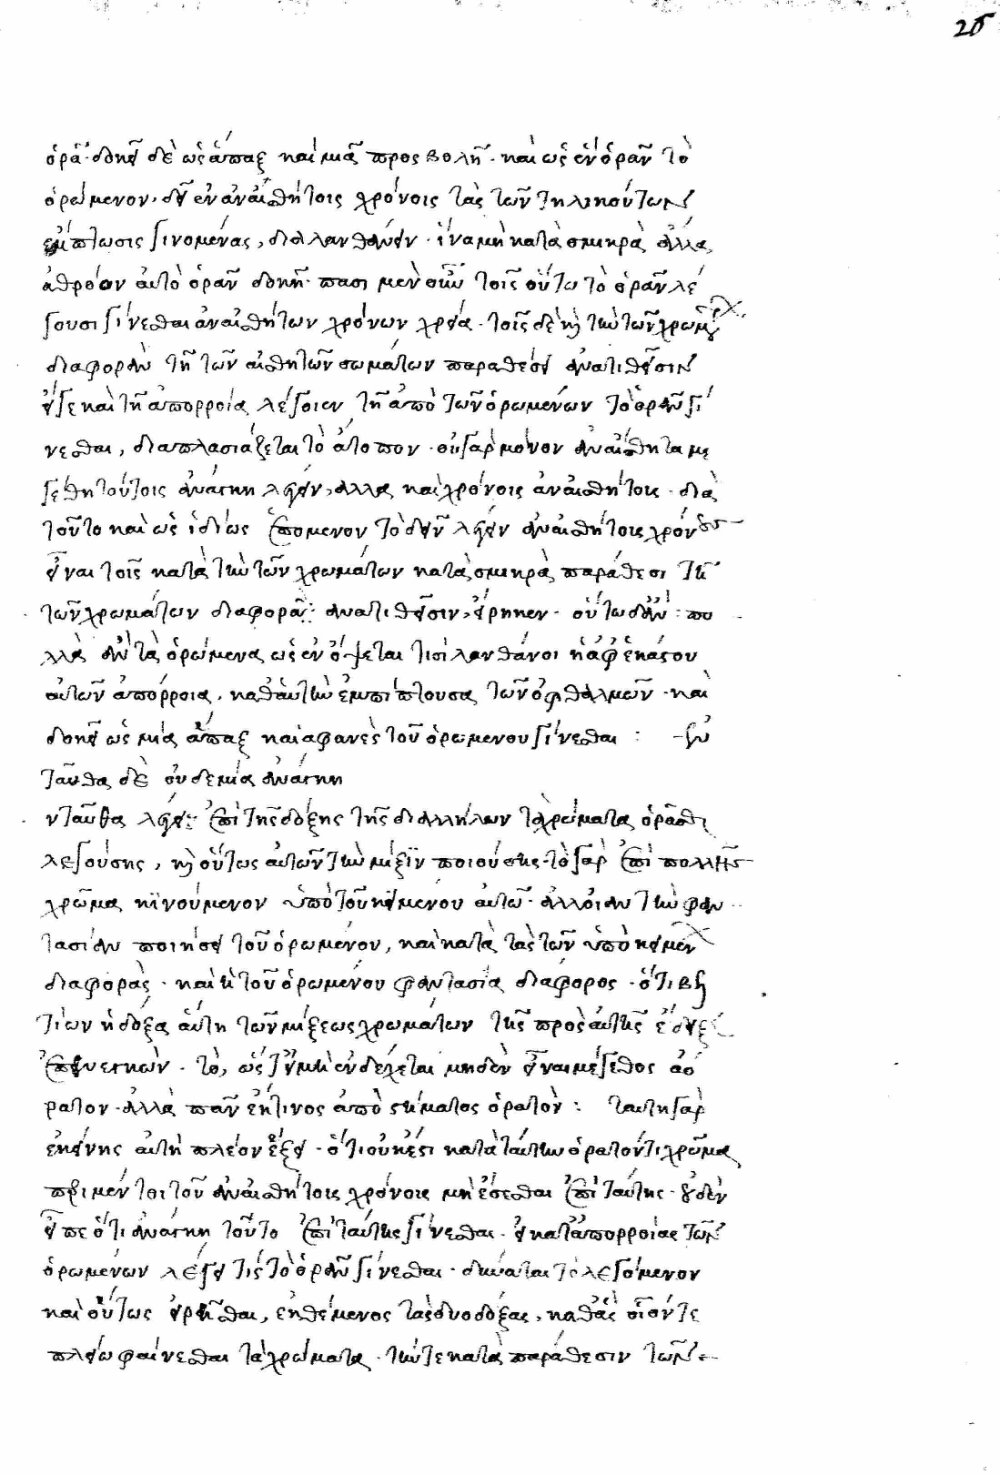 25
ὁρᾷ· δοκεῖ δὲ ὡς ἅπαξ καὶ μιᾷ προσβολῇ· καὶ ὡς ἓν ὁρᾶν τὸ
ὁρώμενον, ἐν ἀναισθήτοις χρόνοις τὰς τῶν τηλικούτων
ἐμπτώσεις γινομένας, διαλανθάνειν· ἵνα μὴ κατὰ σμικρὰ ἀλλὰ
ἀθρόον αὐτὸ ὁρᾶν δοκῇ· πᾶσι μὲν οὖν τοῖς οὕτω τὸ ὁρᾶν λέ
γουσι γίνεσθαι ἀναισθήτων χρόνων χρεία· τοῖς δὲ καὶ τὴν τῶν χρωμάτων
διαφορὰν τῇ τῶν αἰσθητῶν σωμάτων παραθέσει ἀνατιθεῖσιν
εἴγε καὶ τῇ ἀπορροίᾳ λέγοιεν τῇ ἀπὸ τῶν ὁρωμένων τὸ ὁρᾶν γί
νεσθαι, διπλασιάζεται τὸ ἄτοπον· οὐ γὰρ μόνον ἀναίσθητα με
γέθη τούτοις ἀνάγκη λέγειν, ἀλλὰ καὶ χρόνους ἀναισθήτους· διὰ
τοῦτο καὶ ὡς ἰδίως ἑπόμενον τὸ δεῖν λέγειν ἀναισθήτους χρόνους
εἶναι τοῖς κατὰ τὴν τῶν χρωμάτων κατὰ σμικρὰ παράθεσι τὴν
τῶν χρωμάτων διαφορὰν ἀνατιθεῖσιν, εἴρηκεν· οὕτω δ' ἄν: πο
λλὰ ἂν τὰ ὁρώμενα ὡς ἓν ὄψεται τις εἰ λανθάνοι ἡ ἀφ' ἑκάστου
αὐτῶν ἀπόρροια, καθ' αὑτὴν ἐμπίπτουσα τῶν ὀφθαλμῶν· καὶ
δοκεῖ ὡς μία ἅπαξ καὶ ἀφανὲς τοῦ ὁρωμένου γίνεσθαι: ἐν
ταῦθα δὲ οὐδεμία ἀνάγκη
νταῦθα λέγει: ἐπὶ τῆς δόξης τῆς δι' ἀλλήλων τὰ χρώματα ὁρᾶσθαι
λεγούσης, καὶ οὕτως αὐτῶν τὴν μῖξιν ποιούσης· τὸ γὰρ ἐπιπολῆς
χρῶμα κινούμενον ὑπὸ τοῦ κειμένου αὐτῷ· ἀλλοίαν τὴν φαν
τασίαν ποιήσει τοῦ ὁρωμένου, καὶ κατὰ τὰς τῶν ὑποκειμένων
διαφορὰς· καὶ ἡ τοῦ ὁρωμένου φαντασία διάφορος· ὅτι βελ
τίων ἡ δόξα αὕτη τῶν μίξεως χρωμάτων τῆς πρὸ αὐτῆς ἔδειξε
ἐπενεγκών· τὸ, ὡς εἴγε μὴ ἐνδέχεται μηδὲν εἶναι μέγεθος ἀό
ρατον· ἀλλὰ πᾶν ἔκ τινος ἀποστήματος ὁρατὸν: ταύτῃ γὰρ
ἐκείνης αὐτὴ πλέον ἕξει· ὅτι οὐκέτι κατὰ ταύτην ὁρατόν τι χρῶμα
περὶ μέντοι τοῦ ἀναισθήτους χρόνους μὴ ἔσεσθαι ἐπὶ ταύτης· οὐδὲν
εἶπε ὅτι ἀνάγκη τοῦτο ἐπὶ ταύτης γίνεσθαι· εἰ κατ' ἀπορροίας τῶν
ὁρωμένων λέγει τις τὸ ὁρᾶν γίνεσθαι· δύναται τὸ λεγόμενον
καὶ οὕτως εἰρῆσθαι, ἐκθέμενος τὰς δύο δόξας, καθ' ἃς οἷόν τε
πλείω φαίνεσθαι τὰ χρώματα· τήν τε κατὰ παράθεσιν τῶν